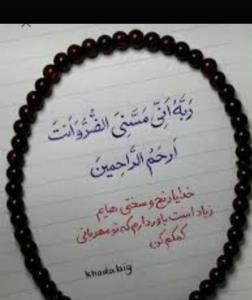 رَبَّهُ اَنّی مَسَّنِیَ الضُّرُّ وَ اَنتَ
اَرحَمُ الرَّاحِمینَ
خدایا رنج و سختی هایم
زیاد است باور دارم که تو مهربانی
کمکم کن
khodabig